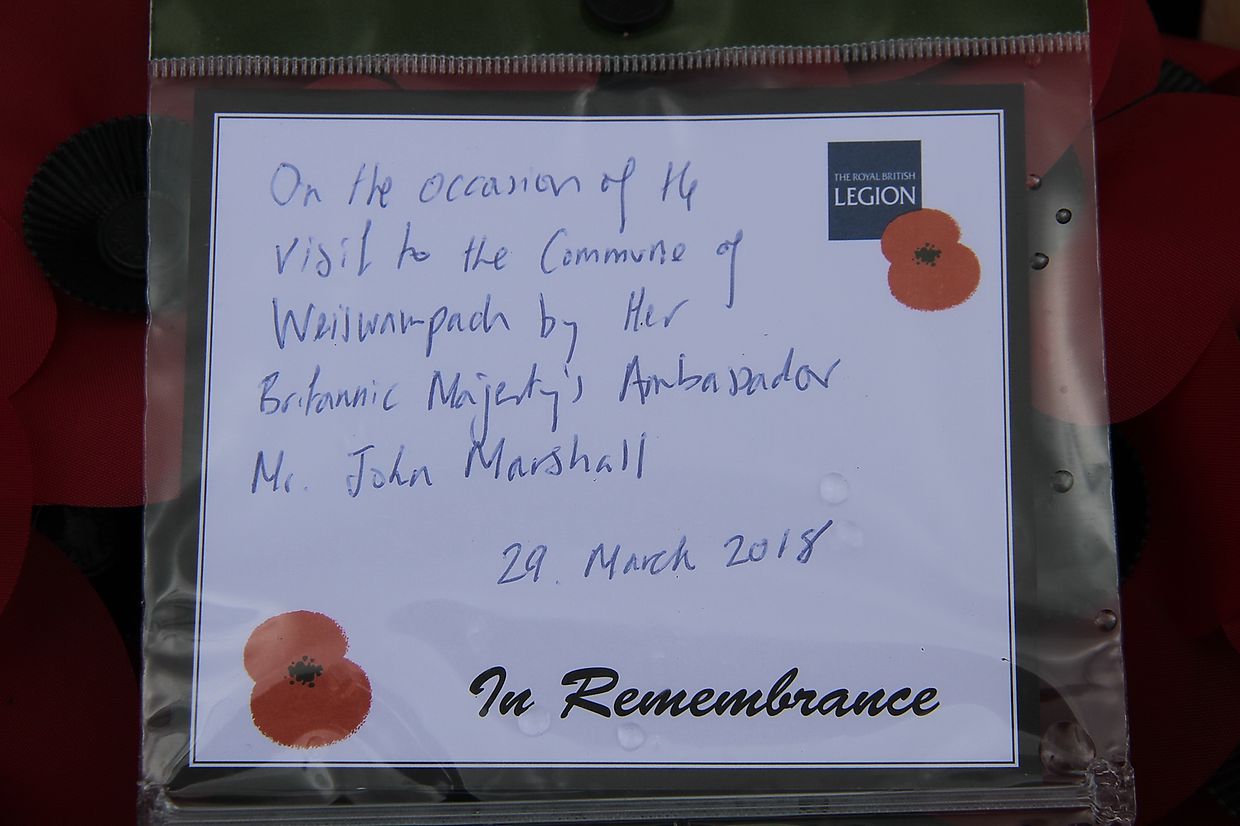 On the occasion of the
visit to the Commune of
Weiswampach by Her
Britannic Majesty's Ambassador
Mr. John Marshall
29. March 2018
THE ROYAL BRITISH
LEGION
In Remembrance